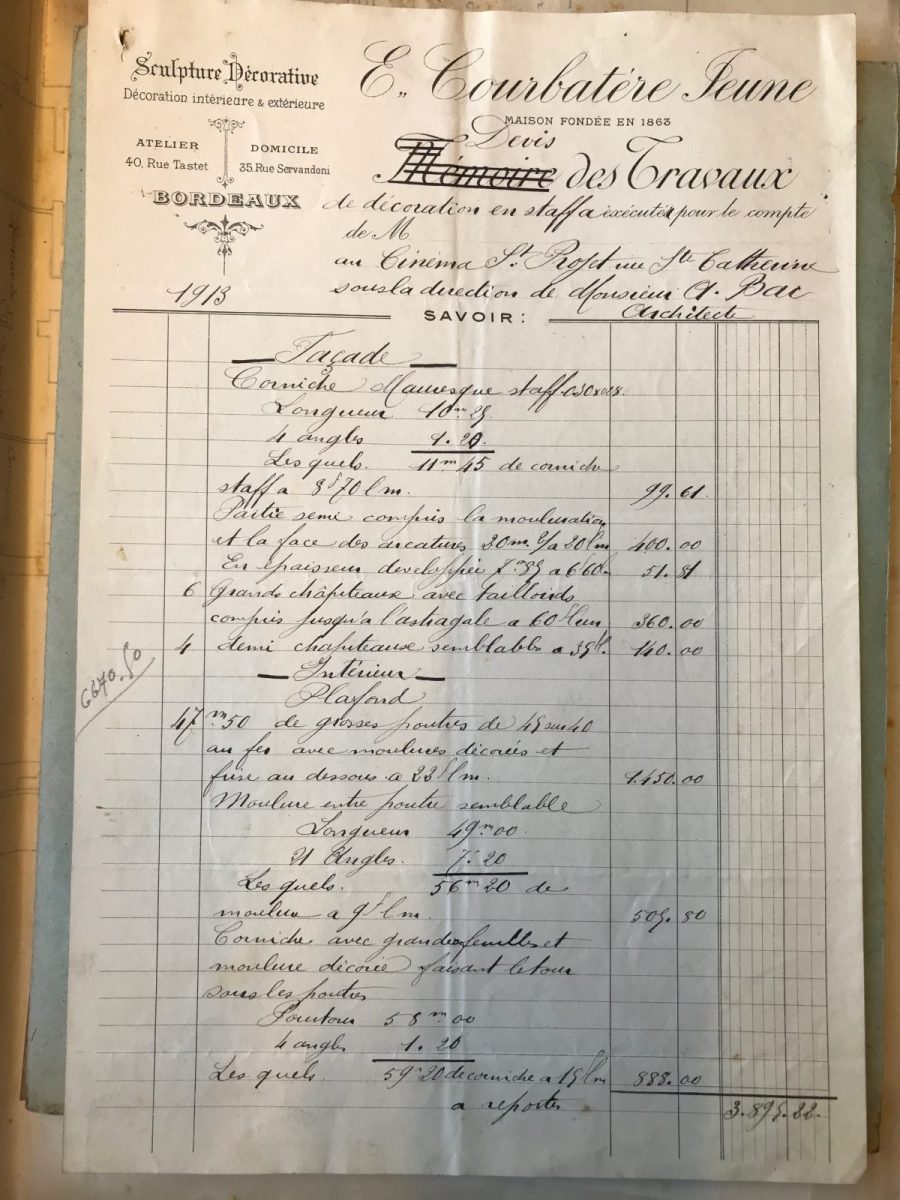 Sculpture Décorative
Décoration intérieure & extérieure
ATELIER
40, Rue Tastet
DOMICILE
35 Rue Servandoni
BORDEAUX
E. Courbatère Jeune
MAISON FONDÉE EN 1863
Devis
Mémoire des Travaux
de décoration en staff a exécuter pour le compte
de M
au Cinéma St. Projet rue Ste Catherine
sous la direction de Monsieur A. Bac
Architecte
1913
SAVOIR :
Façade
Corniche Mauresque staff
Longueur 10m 25
4 angles 1.20
Les quels. 11m 45 de corniche
staff a 8f70 l m. 99.61
Partie semi compris la mouluration
et la face des arcatures 20m a 20f lm 400.00
En épaisseur developpée 7m85 a 6f60 51.81
6 Grands châpiteaux avec tailloirs
compris jusqu'a l'astragale a 60f l'un 360.00
4 demi chapiteaux semblables a 35f. 140.00
Intérieur
Plafond
6670.50
47 m50 de grosses poutres de 45 sur 40
au fer avec moulures décorées et
frise au dessous a 22f lm. 1.450.00
Moulure entre poutre semblable
Longueur 49m00
21 Angles. 7.20
Les quels. 56m 20 de
moulure a 9f lm. 505.80
Corniche avec grandes feuilles et
moulure décorée faisant le tour
sous les poutres
Pourtour 58m00
4 angles 1.20
Les quels. 59m20 de corniche a 15f lm 888.00
a reporter 3.895.22